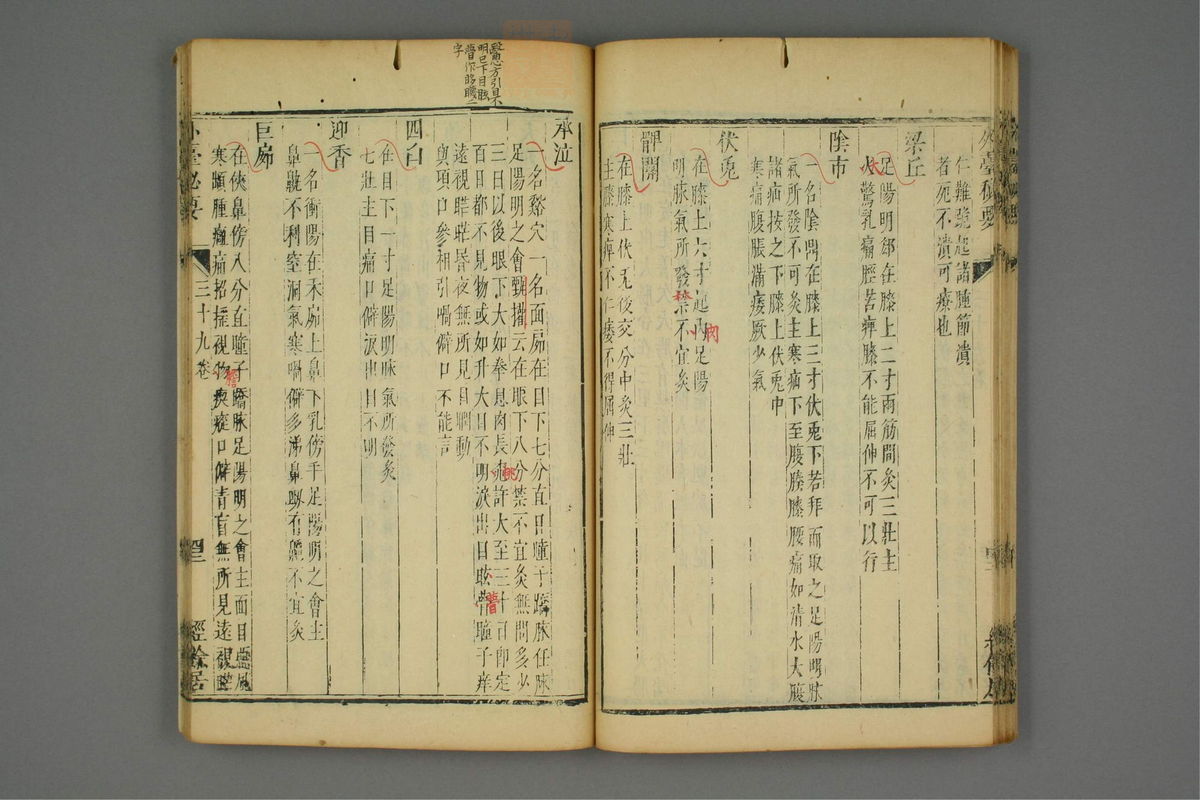 仁難跪起諸腫節潰
者死不潰可療也
梁丘
足陽明郄在膝上二寸兩筋間灸三壯主
大驚乳痛脛苦痺膝不能屈伸不可以行
陰市
一名陰鼎在膝上三寸伏兎下若拜而取之足陽明脉
氣所發不可灸主寒痛下至腹膝腰痛如清水大腹
諸疝按之下膝上伏兎中
寒痛腹脹滿痿厥少氣
伏兎
在膝上六寸起肉足陽
明脉氣所發禁不宜灸
肉
髀關
在膝上伏兎後交分中灸三壯
主膝寒痺不仁痿不得屈伸
醫心方引是不
明已下目眩
瞢作
字
承泣
一名谿穴一名面𪖌在目下七分直目瞳子蹻脉任脉
足陽明之會甄權云在眼下八分禁不宜灸無問多少
三日以後眼下大如拳息肉長桃許大至三十日即定
百日都不見物或如升大目不明淚出目眩瞢瞳子痒
遠視𥇀𥇀昏夜無所見目瞤動
與項口參相引喎僻口不能言
瞢
四白
在目下一寸足陽明脉氣所發灸
七壯主目痛口僻淚出目不明
迎香
一名衝陽在禾𪖌上鼻下孔傍手足陽明之會主
鼻鼽不利窒洞氣寒喎僻多涕鼻衂有癰不宜灸
巨𪖌
在俠鼻傍八分直瞳子蹻脉足陽明之會主面目惡風
寒䪼腫癰痛招搖視物瘈瘲口僻青盲無所見遠視
外臺祕要
三十九卷
經餘居